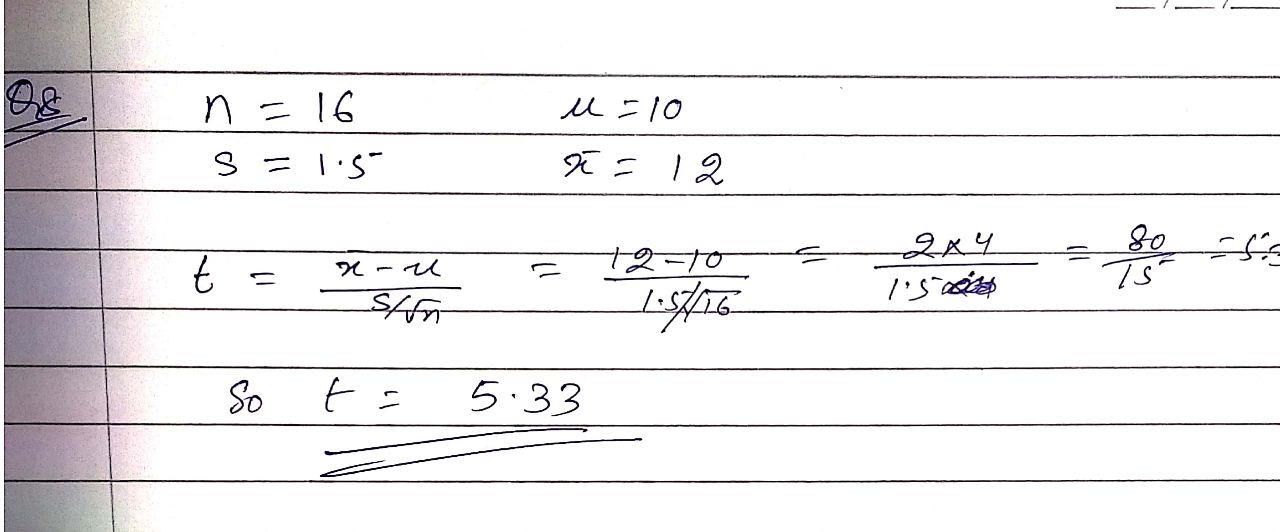 Q8 n = 16 u = 10
S = 1.5 x̄ = 12
t = x - u / S/√n = 12-10 / 1.5/√16 = 2×4 / 1.5 = 80 / 15 = 5.3
So t = 5.33